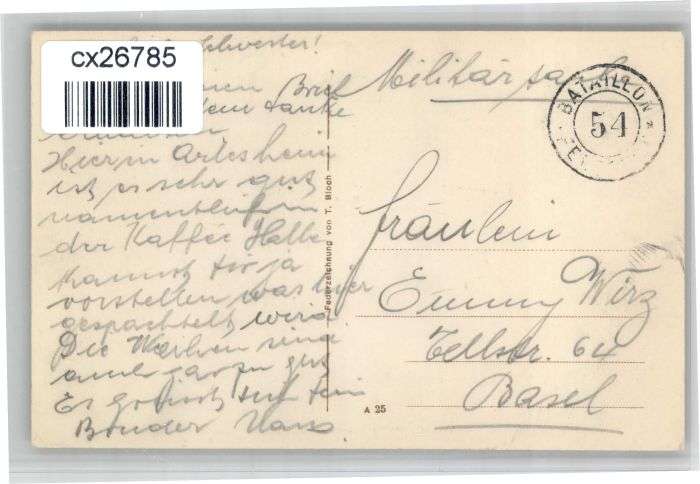 cx26785
Schwester!
Brief
danke
Hier in Arlesheim
ist es sehr gut
namentlich in
der Kaffee Halle
kannst dir ja
vorstellen was hier
gespachtelt wird
Die Weiber sind
auch ganz gut
Es grüsst dich dein
Bruder Hans
Federzeichnung von T. Bloch
A 25
Militärsache
BATAILLON
54
Fräulein
Emmy Wirz
Tellstr. 64
Basel